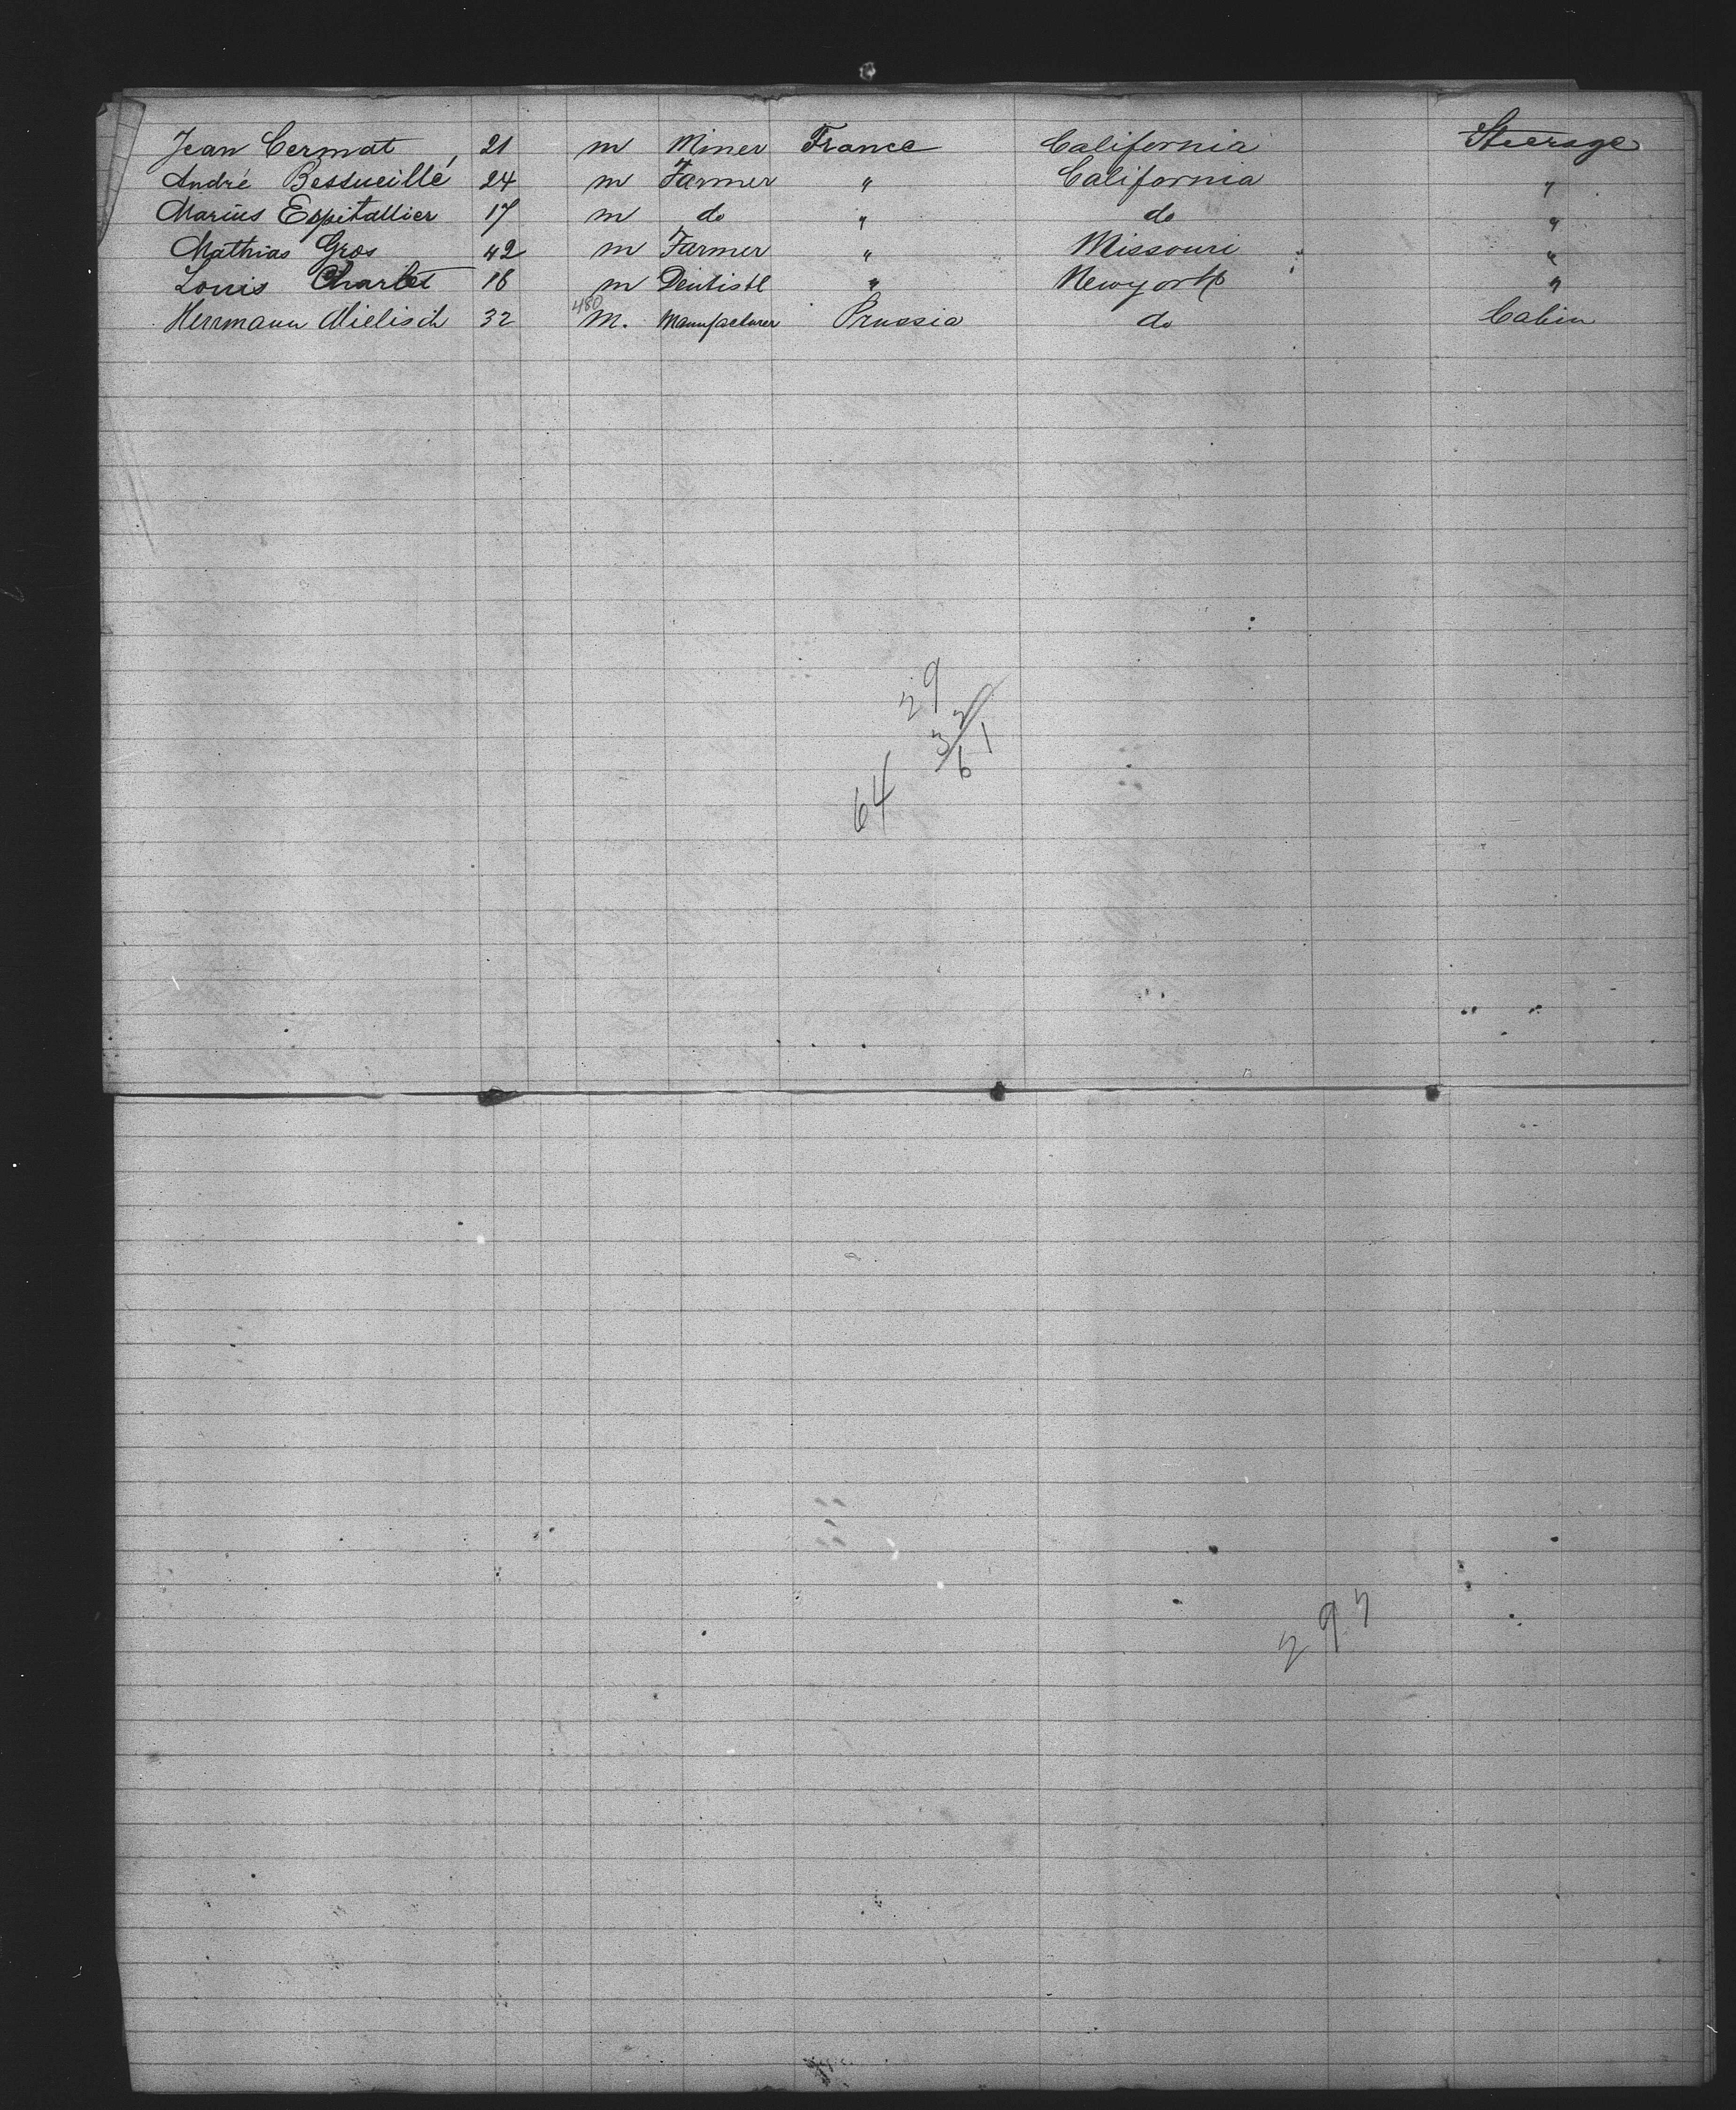 Jean Cermat 21 m Miner France California Steerage
André Bessueille 24 m Farmer " California "
Marius Espitallier 17 m do " do "
Mathias Gros 42 m Farmer " Missouri "
Louis Charlet 18 m Dentist " Newyork "
480
Herrmann Mielisch 32 M. Manufacturer Prussia do Cabin
29
32
61
64
297